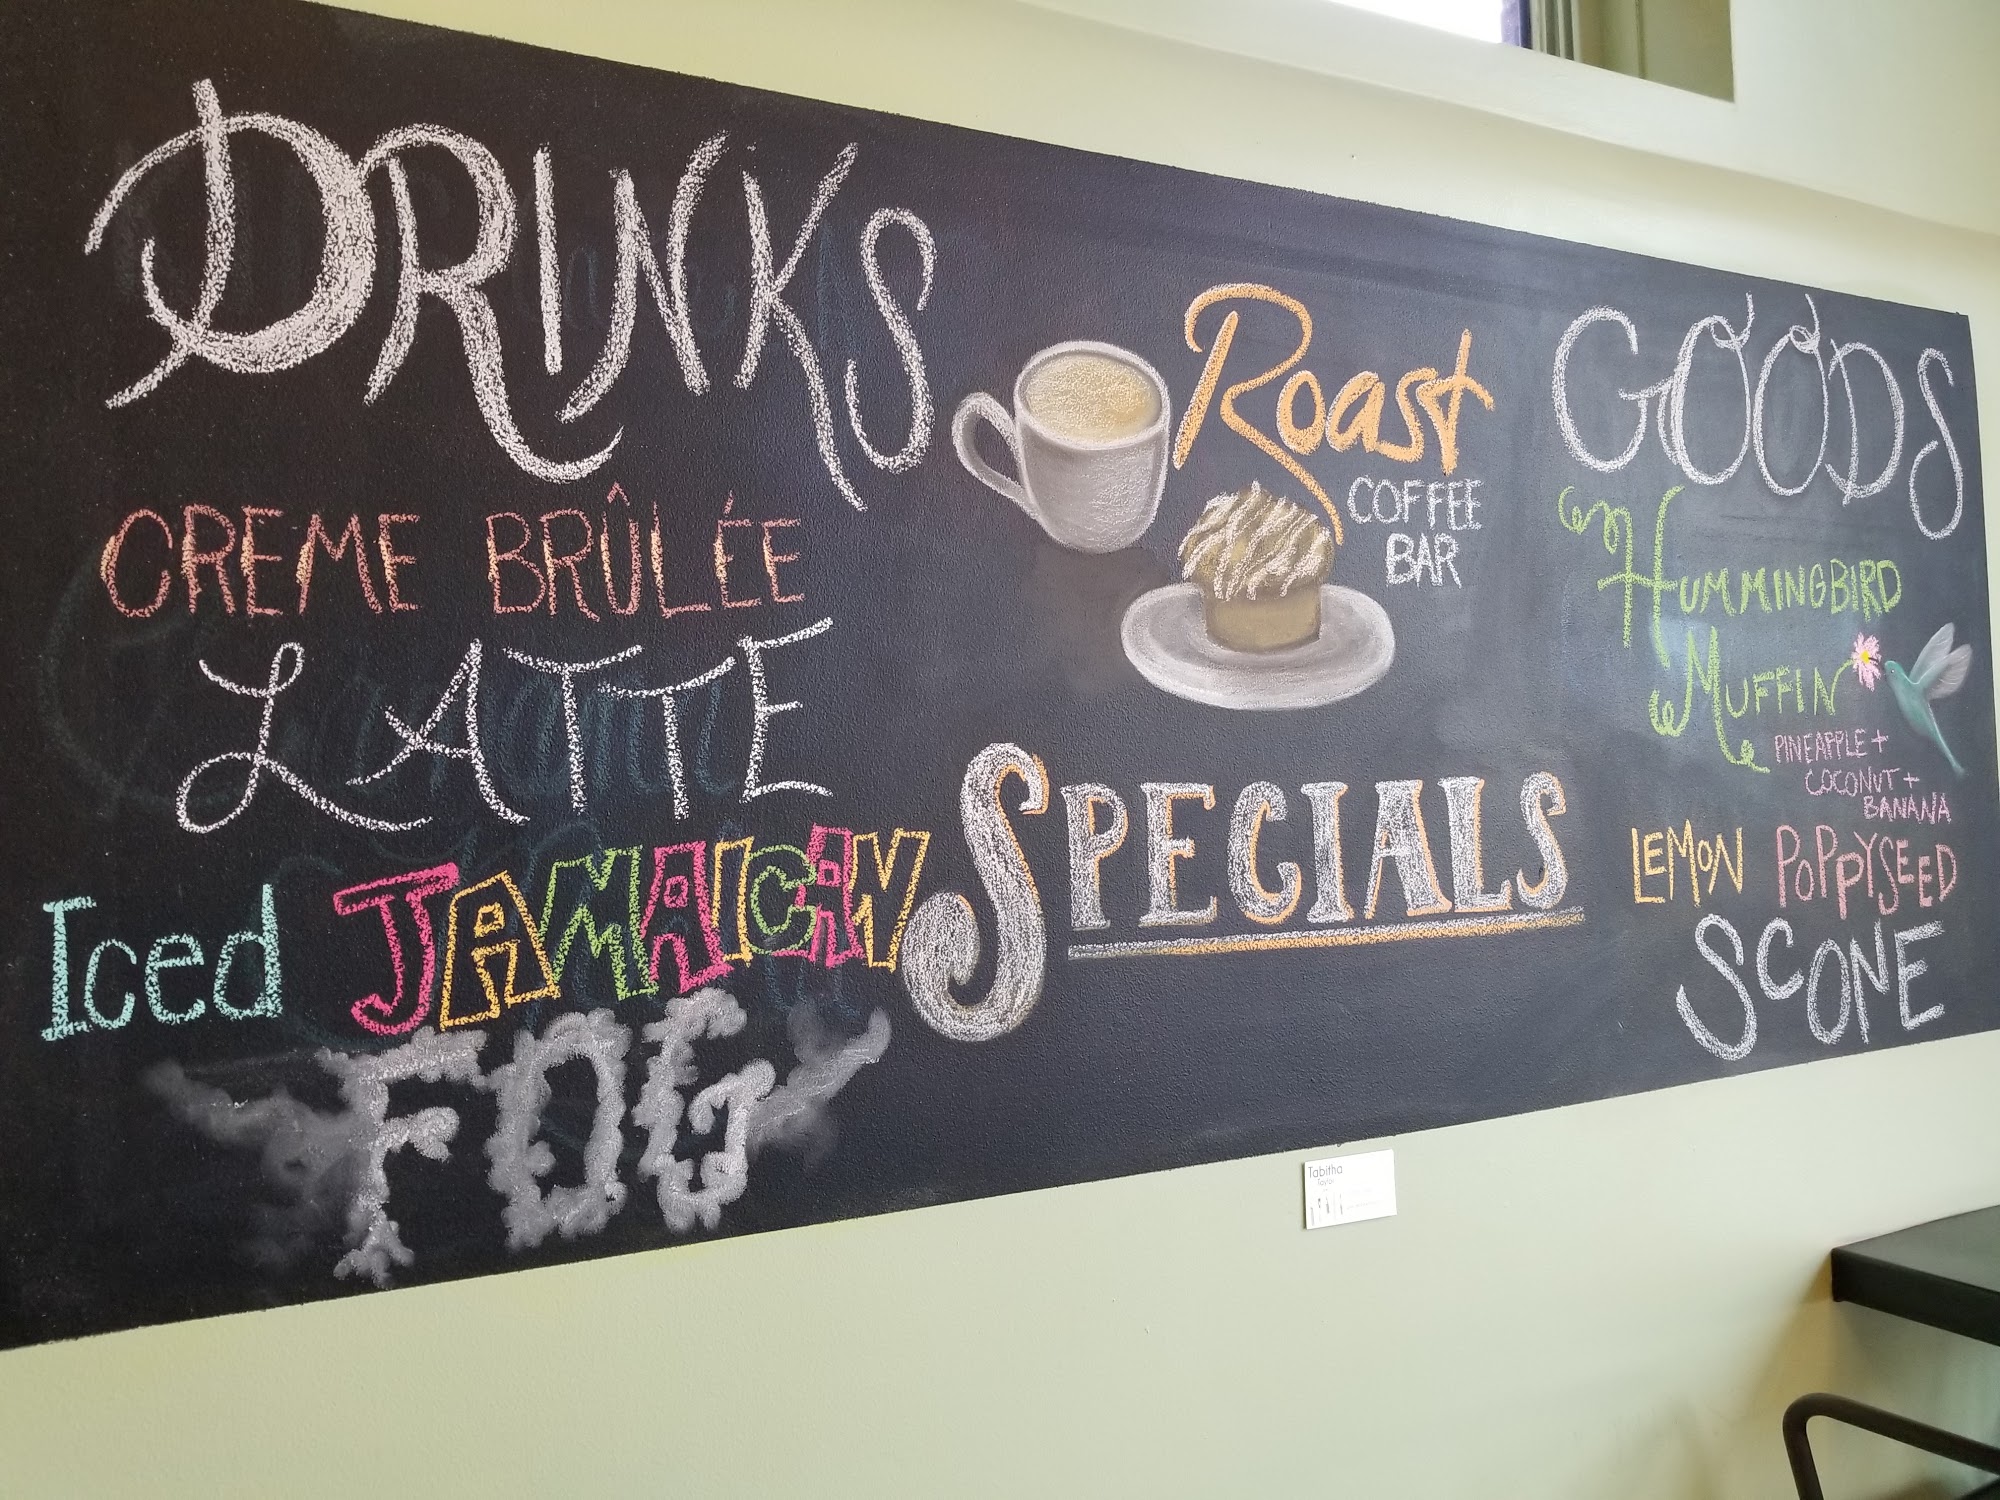 DRINKS
CREME BRÛLÉE
LATTE
Iced JAMAICAN
FOG
Roast
COFFEE
BAR
SPECIALS
GOODS
HUMMINGBIRD
MUFFIN
PINEAPPLE +
COCONUT +
BANANA
LEMON POPPYSEED
SCONE
Tabitha
Taylor